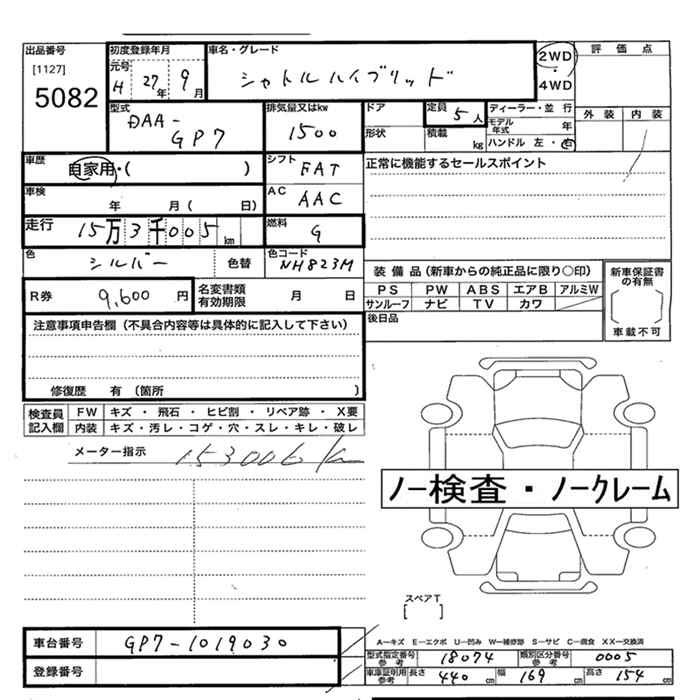 出品番号 初度登録年月 車名・グレード 評価点
[1127] 元号 シャトルハイブリッド 2WD
5082 H 27年 9月 ・4WD
型式 排気量又はkw ドア 定員 5人 ディーラー・並行 外装 内装
DAA-GP7 1500 形状 積載 kg モデル年式 年
ハンドル 左・右
車歴 自家用・( ) シフト FAT 正常に機能するセールスポイント
車検 年 月( 日) AC AAC
走行 15万3千005km 燃料 G
色 シルバー 色替 色コード NH823M
装備品(新車からの純正品に限り○印) 新車保証書の有無
R券 9,600円 名変書類有効期限 月 日 PS PW ABS エアB アルミW
サンルーフ ナビ TV カワ 車載不可
注意事項申告欄(不具合内容等は具体的に記入して下さい) 後日品
修復歴 有(箇所 )
検査員記入欄 FW キズ・飛石・ヒビ割・リペア跡・X要
内装 キズ・汚レ・コゲ・穴・スレ・キレ・破レ
メーター指示 153006km
ノー検査・ノークレーム
スペアT
[ ]
車台番号 GP7-1019030
A―キズ E―エクボ U―凹み W―補修跡 S―サビ C―腐食 XX―交換済
型式指定番号参考 18074 類別区分番号参考 0005
登録番号 車庫証明用参考 長さ 440cm 幅 169cm 高さ 154cm